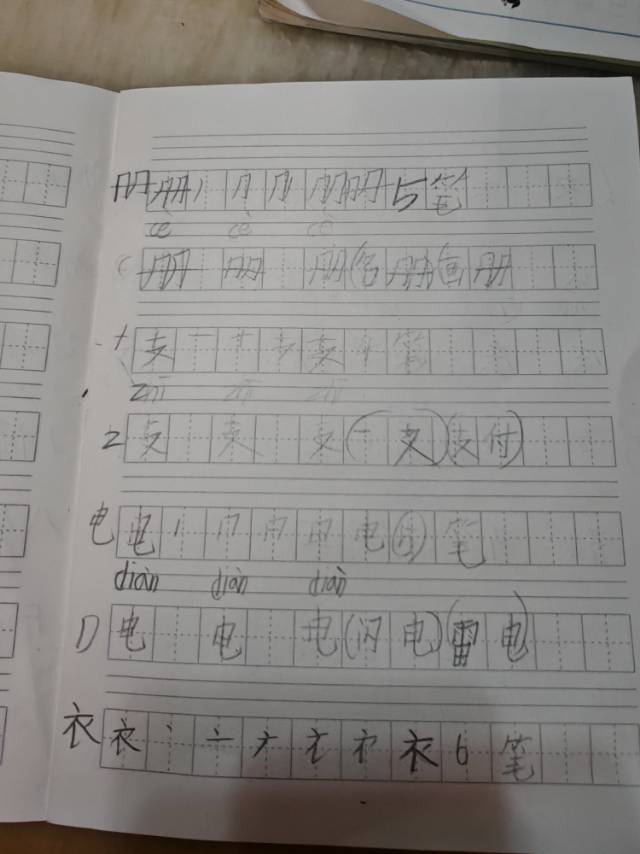 册 册 丿 册 册 5 笔
cè cè cè
册 册 册 (名 册) (画 册
支 支 笔
zhī zhī zhī
Z 支 支 支 (一 支) (支 付)
电 电 丨 冂 日 电 笔
diàn diàn diàn
D 电 电 电 (闪 电) (雷 电)
衣 衣 丶 亠 衣 6 笔